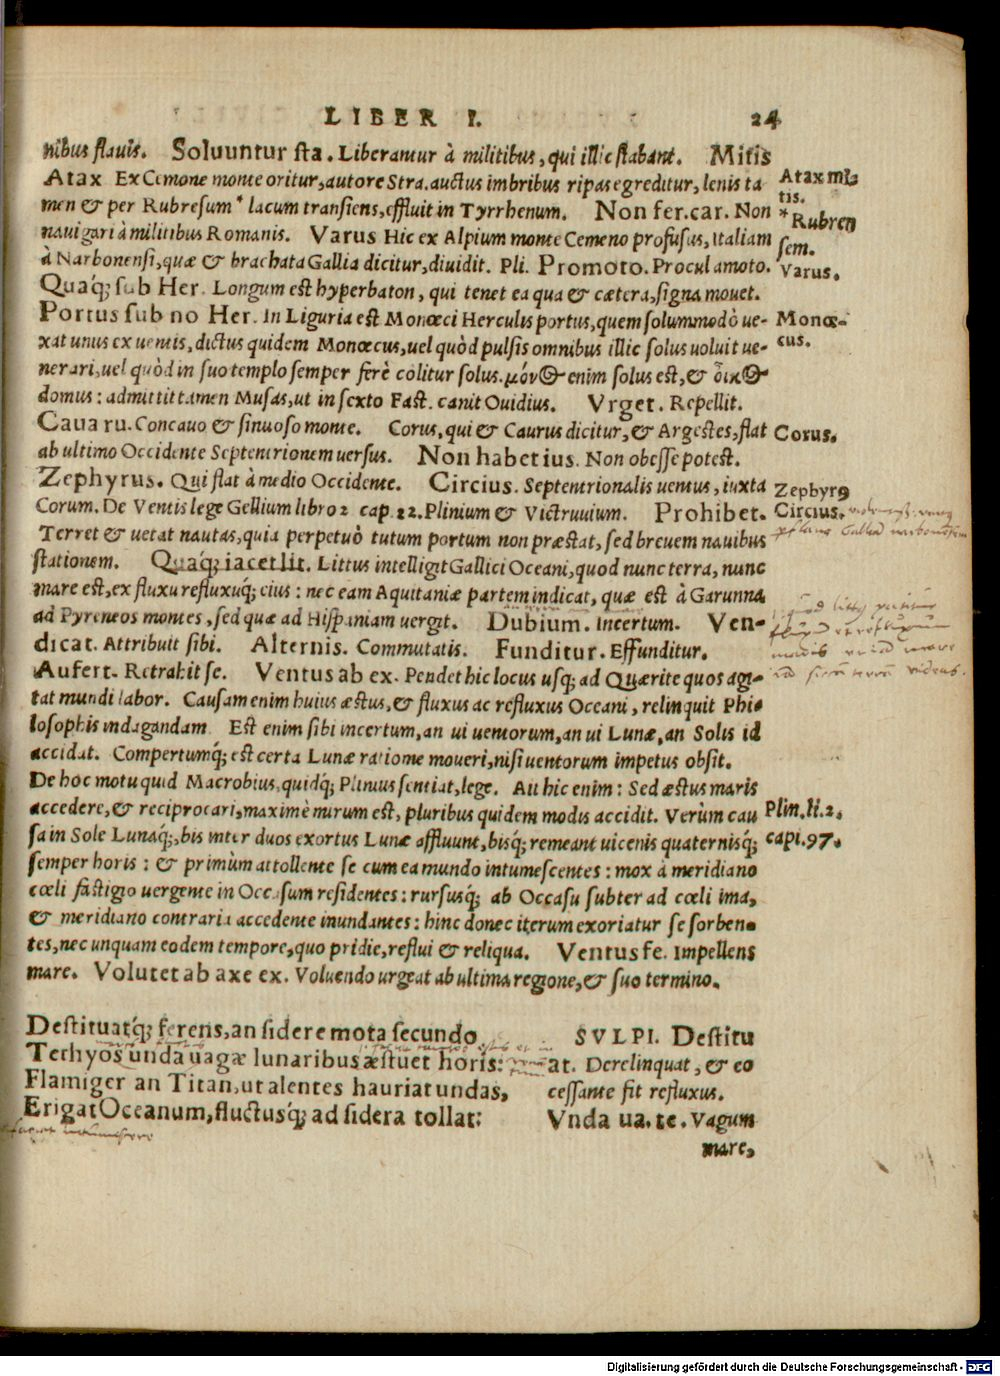 LIBER I. 24
nibus flauis. Soluuntur sta. Liberantur à militibus, qui illic stabant. Mitis
Atax Ex Cemone monte oritur, autore Stra. auctus imbribus ripas egreditur, lenis ta
men & per Rubresum* lacum transiens, effluit in Tyrrhenum. Non fer. car. Non
nauigari à militibus Romanis. Varus Hic ex Alpium monte Cemeno profusus, Italiam
à Narbonensi, quæ & brachata Gallia dicitur, diuidit. Pli. Promoto. Procul amoto.
Quaq́; sub Her. Longum est hyperbaton, qui tenet ea qua & cætera, signa mouet.
Portus sub no Her. In Liguria est Monœci Herculis portus, quem solummodò ue-
xat unus ex uentis, dictus quidem Monœcus, uel quòd pulsis omnibus illic solus uoluit ue-
nerari, uel quòd in suo templo semper ferè colitur solus. μόνος enim solus est, & οἶκος
domus: admittit tamen Musas, ut in sexto Fast. canit Ouidius. Vrget. Repellit.
Caua ru. Concauo & sinuoso monte. Corus, qui & Caurus dicitur, & Argestes, flat
ab ultimo Occidente Septentrionem uersus. Non habet ius. Non obesse potest.
Zephyrus. Qui flat à medio Occidente. Circius. Septentrionalis uentus, iuxta
Corum. De Ventis lege Gellium libro 2 cap. 22. Plinium & Victruuium. Prohibet.
Terret & uetat nautas, quia perpetuò tutum portum non præstat, sed breuem nauibus
stationem. Quaq́; iacet lit. Littus intelligit Gallici Oceani, quod nunc terra, nunc
mare est, ex fluxu refluxuq́; eius: nec eam Aquitaniæ partem indicat, quæ est à Garunna
ad Pyreneos montes, sed quæ ad Hispaniam uergit. Dubium. Incertum. Ven-
dicat. Attribuit sibi. Alternis. Commutatis. Funditur. Effunditur.
Aufert. Retrahit se. Ventus ab ex. Pendet hic locus usq; ad Quærite quos agi-
tat mundi labor. Causam enim huius æstus, & fluxus ac refluxus Oceani, relinquit Phi-
losophis indagandam Est enim sibi incertum, an ui uentorum, an ui Lunæ, an Solis id
accidat. Compertumq́; est certa Lunæ ratione moueri, nisi uentorum impetus obsit.
De hoc motu quid Macrobius, quidq́; Plinius sentiat, lege. Ait hic enim: Sed æstus maris
accedere, & reciprocari, maximè mirum est, pluribus quidem modis accidit. Verùm cau
sa in Sole Lunaq́;, bis inter duos exortus Lunæ affluunt, bisq́; remeant uicenis quaternisq́;
semper horis: & primùm attollente se cum ea mundo intumescentes: mox à meridiano
cœli fastigio uergente in Occasum residentes: rursusq́; ab Occasu subter ad cœli ima,
& meridiano contraria accedente inundantes: hinc donec iterum exoriatur se sorben-
tes, nec unquam eodem tempore, quo pridie, reflui & reliqua. Ventus fe. Impellens
mare. Volutet ab axe ex. Voluendo urgeat ab ultima regione, & suo termino.
Atax mi-
tis.
*Rubren
sem.
Varus.
Monœ-
cus.
Corus.
Zephyrꝰ
Circius.
Plin. li. 2.
capi. 97.
Destituatq́; ferens, an sidere mota secundo
Tethyos unda uagæ lunaribus æstuet horis:
Flamiger an Titan, ut alentes hauriat undas,
Erigat Oceanum, fluctusq́; ad sidera tollat:
SVLPI. Destitu
at. Derelinquat, & eo
cessante fit refluxus.
Vnda ua. te. Vagum
mare,
Digitalisierung gefördert durch die Deutsche Forschungsgemeinschaft - DFG